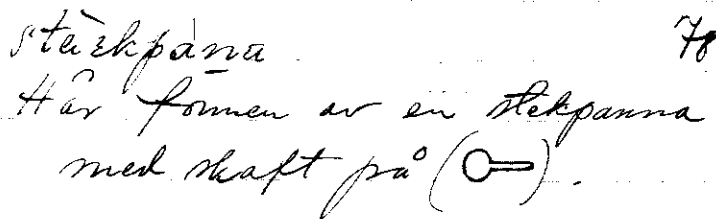 stäekpána 78
Har formen av en stekpanna
med skaft på ( ).